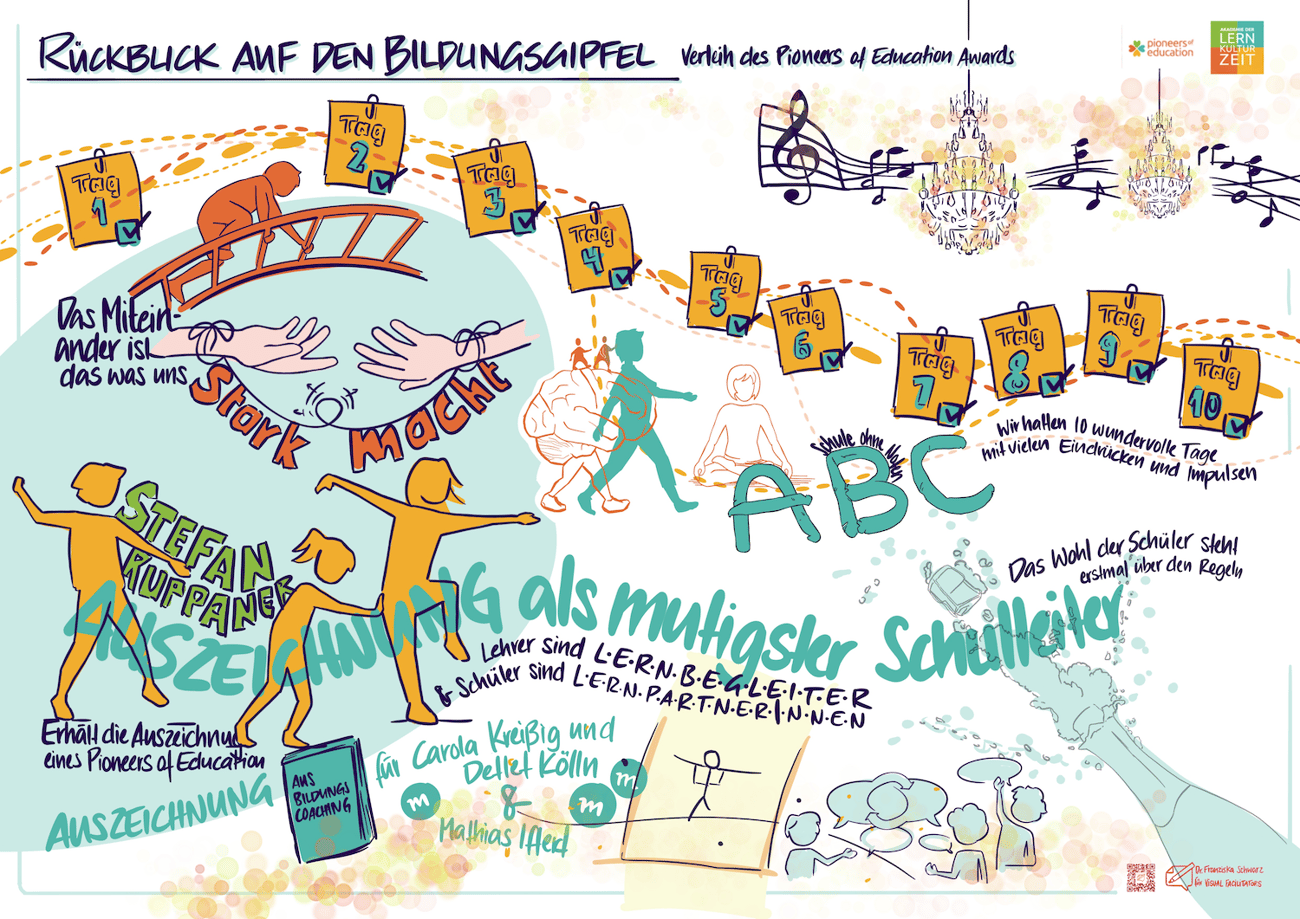 RÜCKBLICK AUF DEN BILDUNGSGIPFEL
Verleih des Pioneers of Education Awards
pioneers of
education
AKADEMIE DER
LERN
KULTUR
ZEIT
Tag
1
Tag
2
Tag
3
Tag
4
Tag
5
Tag
6
Tag
7
Tag
8
Tag
9
Tag
10
Das Mitein-
ander ist
das was uns
Stark macht
Schule ohne Noten
ABC
Wir hatten 10 wundervolle Tage
mit vielen Eindrücken und Impulsen
Das Wohl der Schüler steht
erstmal über den Regeln
STEFAN
RUPPANER
AUSZEICHNUNG als mutigster Schulleiter
Lehrer sind L.E.R.N.B.E.G.L.E.I.T.E.R
& Schüler sind L.E.R.N.P.A.R.T.N.E.R.I.N.N.E.N
Erhält die Auszeichnung
eines Pioneers of Education
AUSZEICHNUNG
AUS
BILDUNGS
COACHING
für Carola Kreißig und
Detlef Kölln
&
Mathias Iffert
m
m
m
Dr. Franziska Schwarz
für VISUAL FACILITATORS